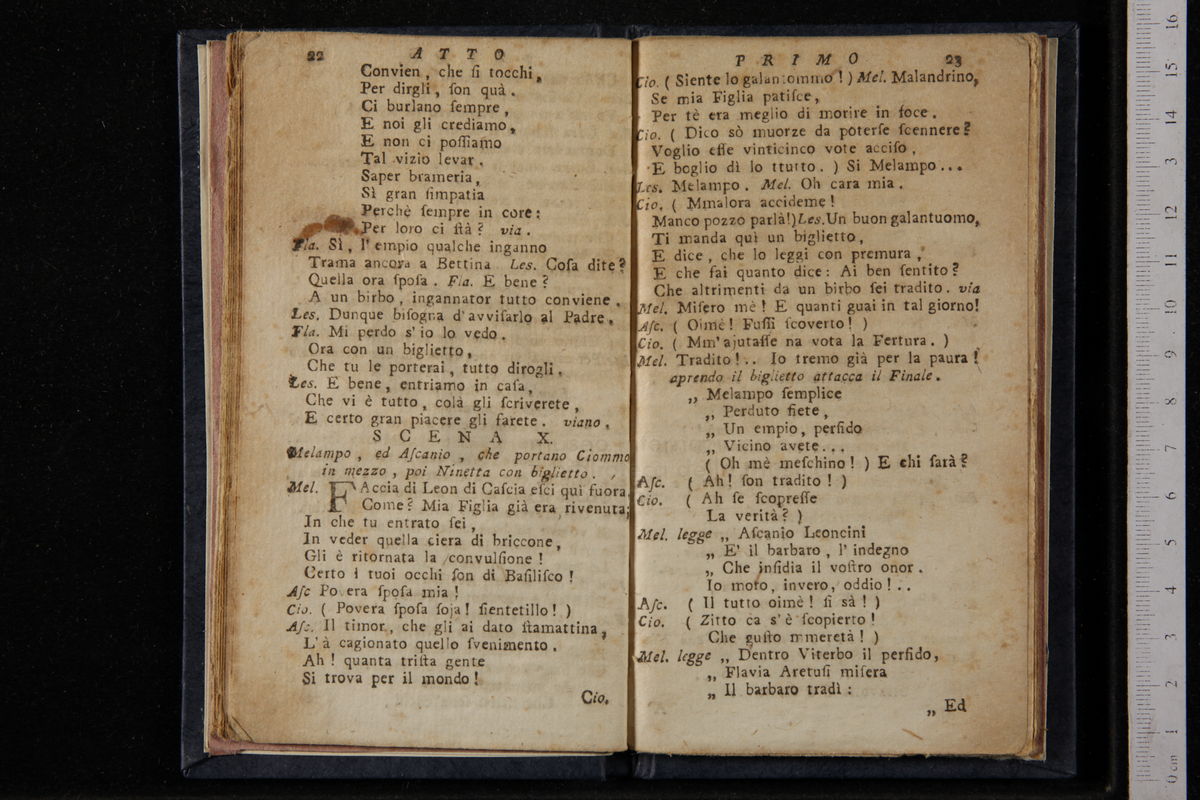 22 ATTO
Convien, che ſi tocchi,
Per dirgli, ſon quà.
Ci burlano ſempre,
E noi gli crediamo,
E non ci poſſiamo
Tal vizio levar.
Saper brameria,
Sì gran ſimpatia
Perchè ſempre in core:
Per loro ci ſtà? via.
Fla. Sì, l'empio qualche inganno
Trama ancora a Bettina Les. Coſa dite?
Quella ora ſpoſa. Fla. E bene?
A un birbo, ingannator tutto conviene.
Les. Dunque biſogna d'avviſarlo al Padre.
Fla. Mi perdo s'io lo vedo.
Ora con un biglietto,
Che tu le porterai, tutto dirogli.
Les. E bene, entriamo in caſa,
Che vi è tutto, colà gli ſcriverete,
E certo gran piacere gli farete. viano.
SCENA X.
Melampo, ed Aſcanio, che portano Ciommo
in mezzo, poi Ninetta con biglietto.
Mel. FAccia di Leon di Caſcia eſci quì fuora,
Come? Mia Figlia già era rivenuta;
In che tu entrato ſei,
In veder quella ciera di briccone,
Gli è ritornata la convulſione!
Certo i tuoi occhi ſon di Baſiliſco!
Aſc Povera ſpoſa mia!
Cio. (Povera ſpoſa ſoja! ſientetillo!)
Aſc. Il timor, che gli ai dato ſtamattina,
L'à cagionato quello ſvenimento.
Ah! quanta triſta gente
Si trova per il mondo!
Cio.
PRIMO 23
Cio. (Siente lo galantommo!) Mel. Malandrino,
Se mia Figlia patiſce,
Per tè era meglio di morire in foce.
Cio. (Dico sò muorze da poterſe ſcennere?
Voglio eſſe vinticinco vote acciſo,
E boglio dì lo ttutto.) Si Melampo...
Les. Melampo. Mel. Oh cara mia.
Cio. (Mmalora accideme!
Manco pozzo parlà!) Les. Un buon galantuomo,
Ti manda quì un biglietto,
E dice, che lo leggi con premura,
E che fai quanto dice: Ai ben ſentito?
Che altrimenti da un birbo ſei tradito. via
Mel. Miſero mè! E quanti guai in tal giorno!
Aſc. (Oimè! Fuſſi ſcoverto!)
Cio. (Mm'ajutaſſe na vota la Fertura.)
Mel. Tradito!.. Io tremo già per la paura!
aprendo il biglietto attacca il Finale.
„ Melampo ſemplice
„ Perduto ſiete,
„ Un empio, perfido
„ Vicino avete...
(Oh mè meſchino!) E chi ſarà?
Aſc. (Ah! ſon tradito!)
Cio. (Ah ſe ſcopreſſe
La verità?)
Mel. legge „ Aſcanio Leoncini
„ E' il barbaro, l'indegno
„ Che inſidia il voſtro onor.
Io moro, invero, oddio!..
Aſc. (Il tutto oimè! ſi sà!)
Cio. (Zitto ca s'è ſcopierto!
Che guſto mmeretà!)
Mel. legge „ Dentro Viterbo il perfido,
„ Flavia Aretuſi miſera
„ Il barbaro tradì:
„ Ed
0 cm 1 2 3 4 5 6 7 8 9 10 11 12 13 14 15 16